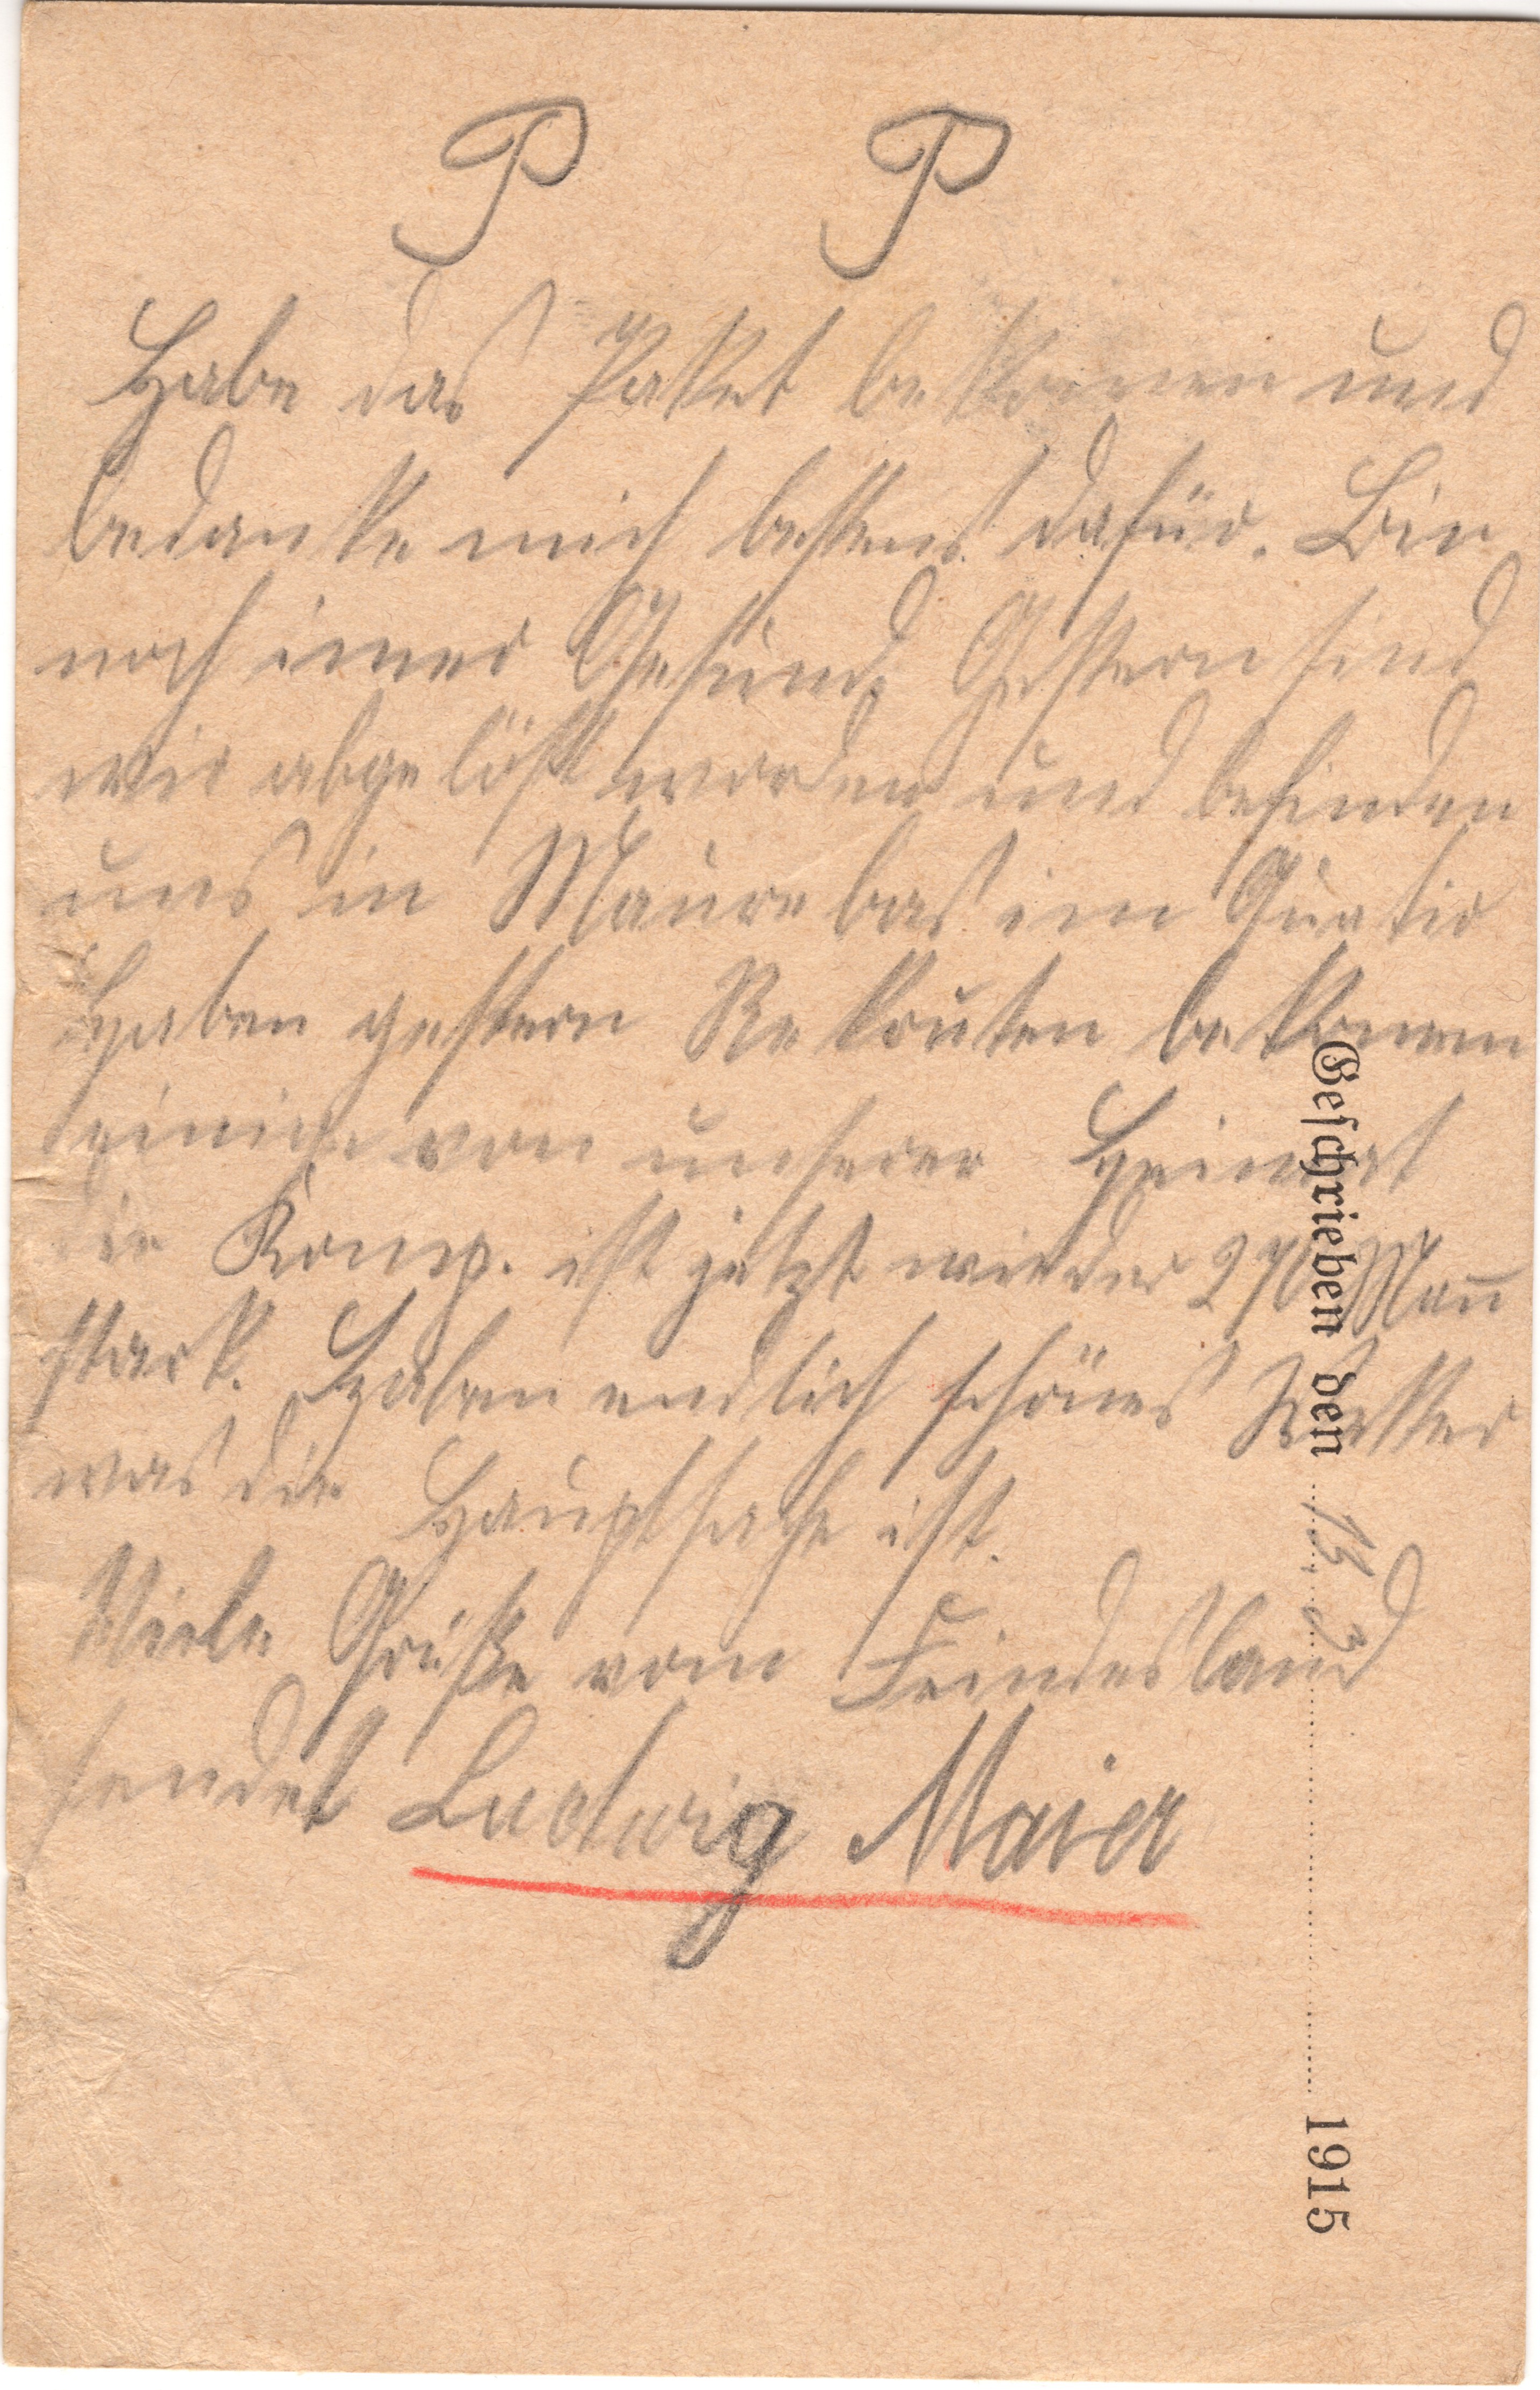 P P
Habe das Paket bekommen und
bedanke mich bestens dafür. Bin
noch imer Gesund, Gestern sind
wir abgelößt worden und befinden
uns in Maurebas im Quatir
Haben gestern Rekruten bekomen
einige von unserer Heimat
die Komp. ist jetzt wieder 270 Man̄
stark. Haben endlich schönes Wetter
was die Hauptsache ist.
Viele Grüße vom Feindesland
sendet Ludwig Maier
Geschrieben den 13. 3 1915